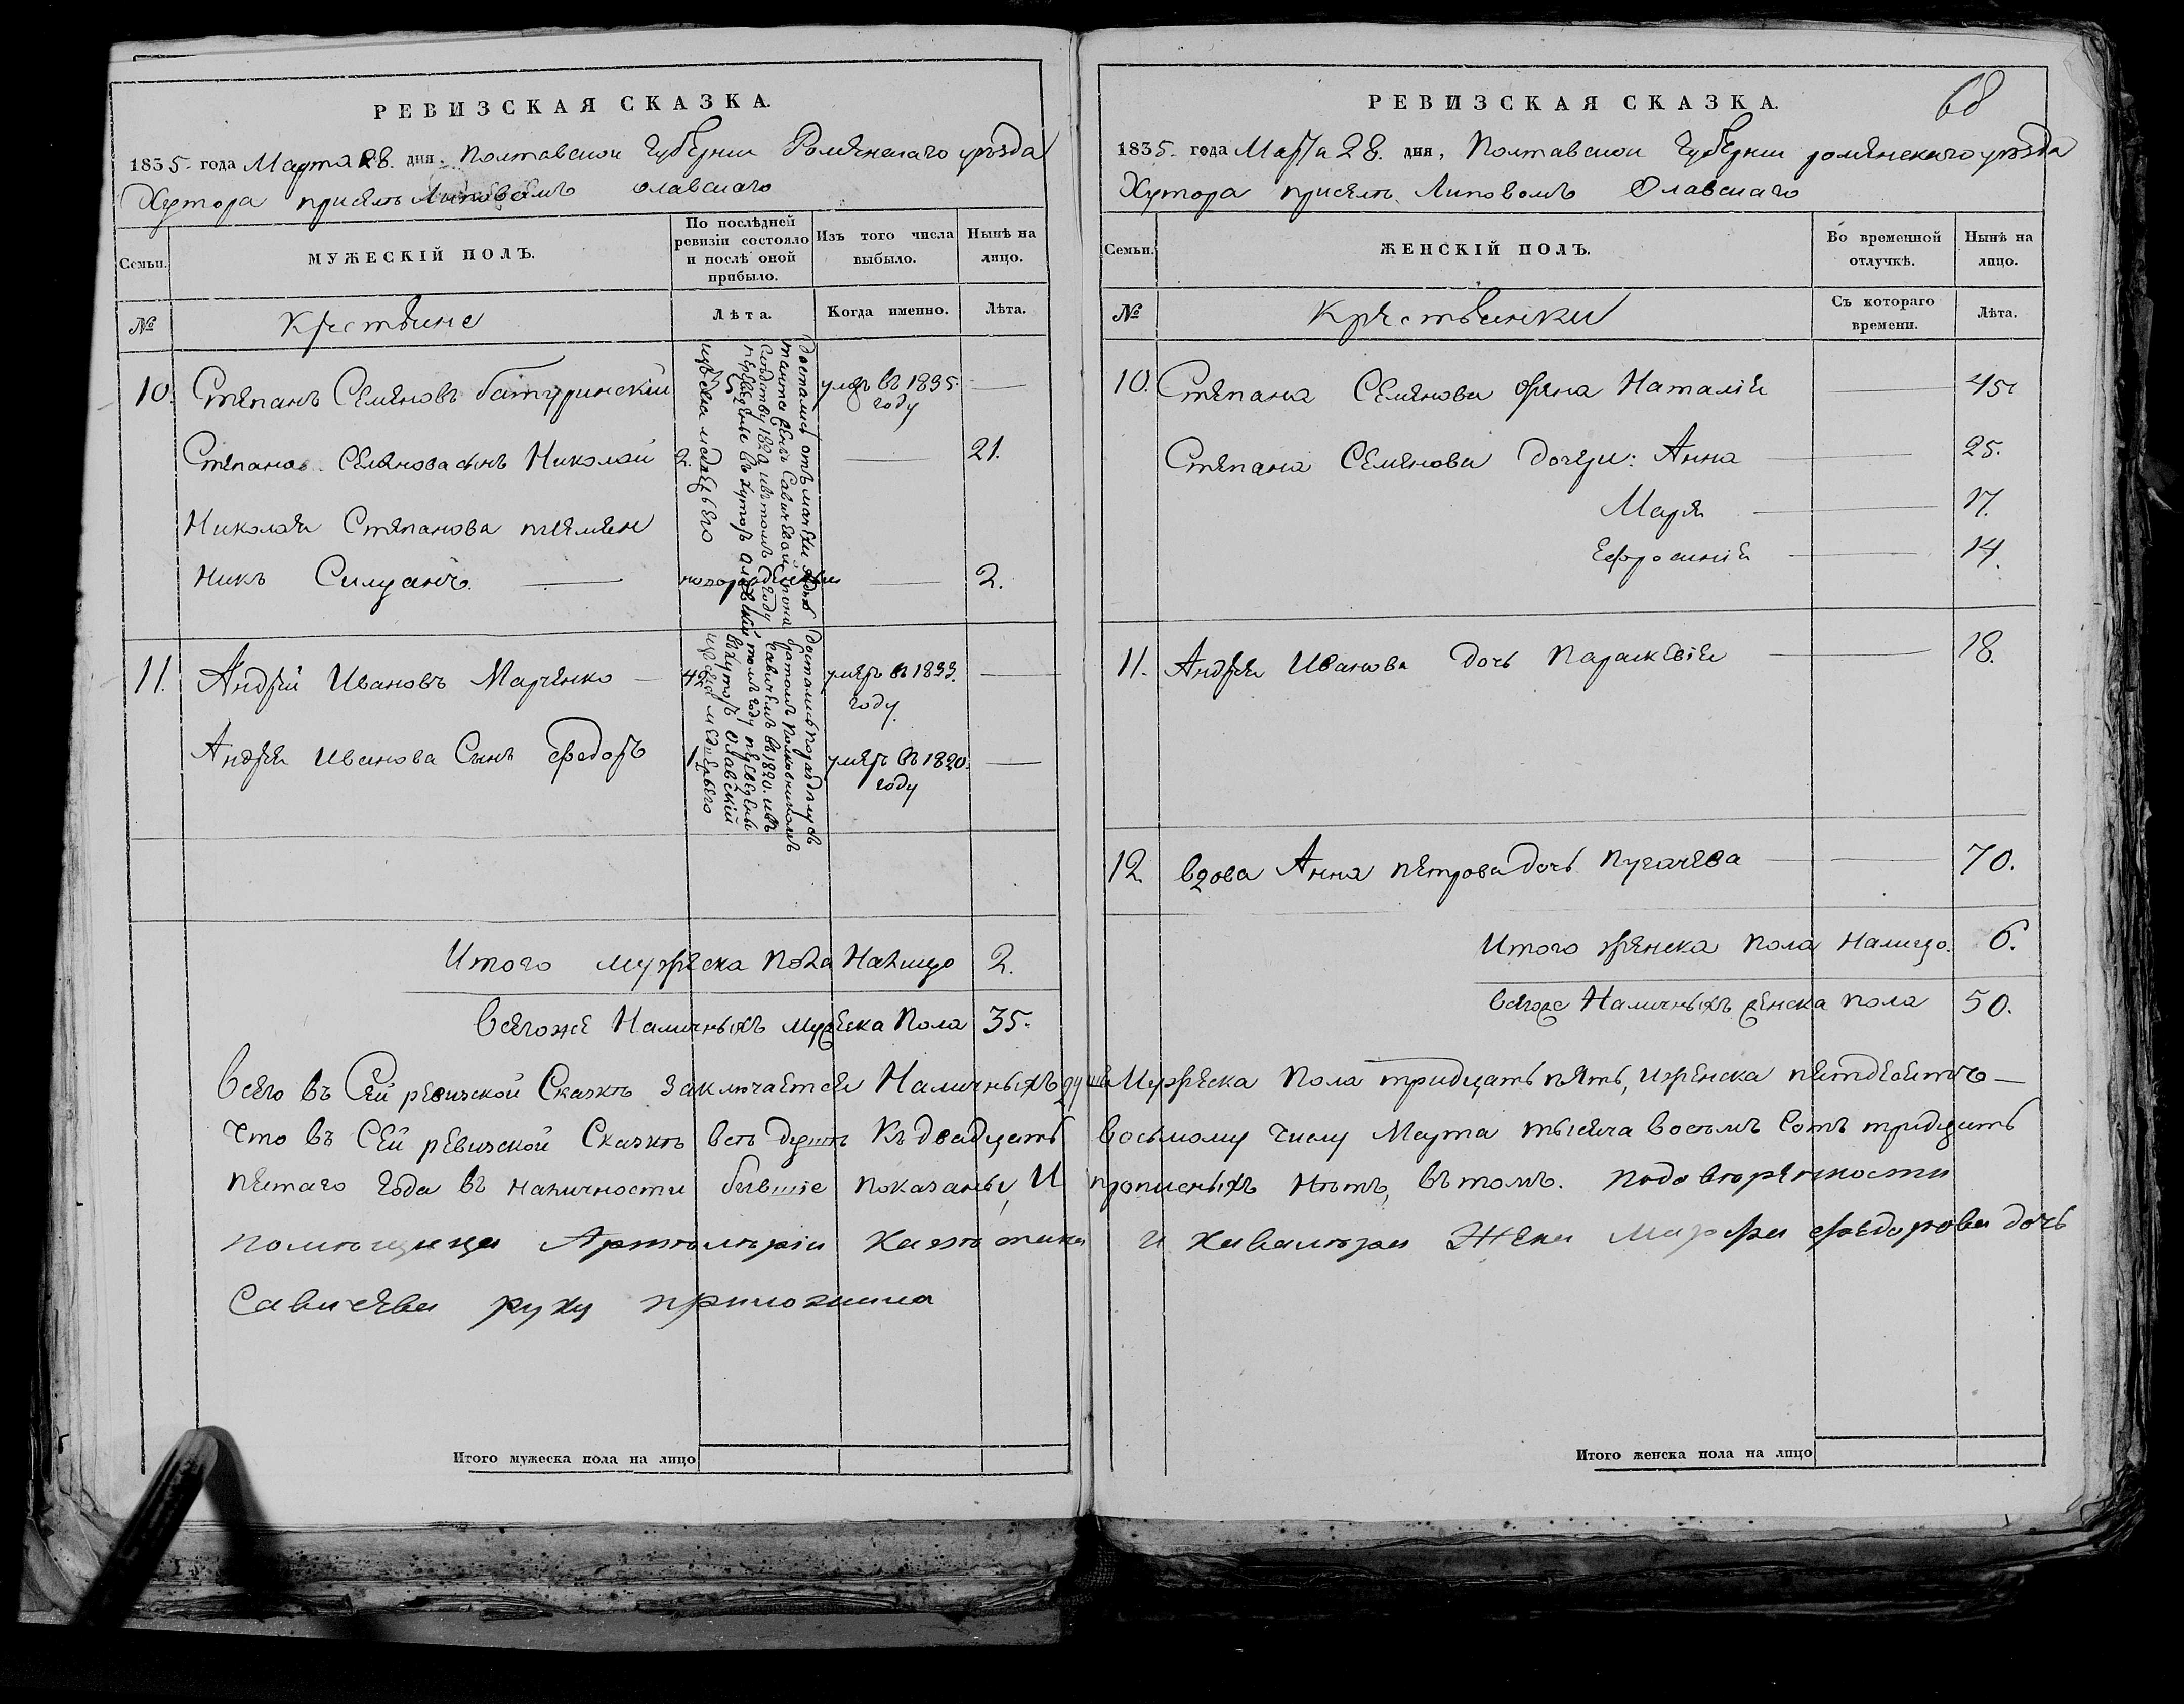 РЕВИЗСКАЯ СКАЗКА.
1835 года Марта 28. дня. Полтавской Губернии Роменскаго уезда
Хутора приселѣ Липовомъ Олавскаго
Семьи.
МУЖЕСКІЙ ПОЛЪ.
По послѣдней ревизіи состояло и послѣ оной прибыло.
Изъ того числа выбыло.
Нынѣ на лицо.
№
Крестьяне
Лѣта.
Когда именно.
Лѣта.
10. Степанъ Семеновъ Батуринскій умеръ въ 1835. году
Степана Семенова сынъ Николай 2. 21.
Николая Степанова племен
никъ Силуанъ. новорожденный 2.
11. Андрей Ивановъ Марченко 42 умеръ въ 1833. году.
Андрея Иванова Сынъ Федоръ 1 умеръ въ 1820. году
Итого мужеска пола Налицо 2.
Всегоже Наличныхъ мужеска Пола 35.
РЕВИЗСКАЯ СКАЗКА.
68
1835. года Марта 28. дня, Полтавской Губернии роменскаго уезда
Хутора приселѣ Липовомъ Олавскаго
Семьи.
ЖЕНСКІЙ ПОЛЪ.
Во временной отлучкѣ.
Нынѣ на лицо.
№
Крестьянки
Съ котораго времени.
Лѣта.
10. Степана Семенова жена Наталія 45
Степана Семенова дочери: Анна 25.
Маря 17.
Ефросинія 14.
11. Андрея Иванова дочь Параскевія 18.
12. вдова Анна петрова дочь Пугачева 70.
Итого женска пола налицо. 6.
всегоже Наличныхъ женска пола 50.
Всего въ Сей ревизской Сказкѣ заключается Наличныхъ душъ Мужеска Пола тридцать пять, иженска петдесетъ
Что въ Сей ревизской Сказкѣ всѣ душѣ Къ двадцать восьмому числу Марта тысяча восемъ сотъ тридцать
петаго года въ наличности бывшіе показаны, И прописныхъ нѣтъ, въ томъ.
помѣщица Артилѣріи и Кавалѣра Жена Марфа федорова дочь
Савичева руку приложила
Итого мужеска пола на лицо
Итого женска пола на лицо